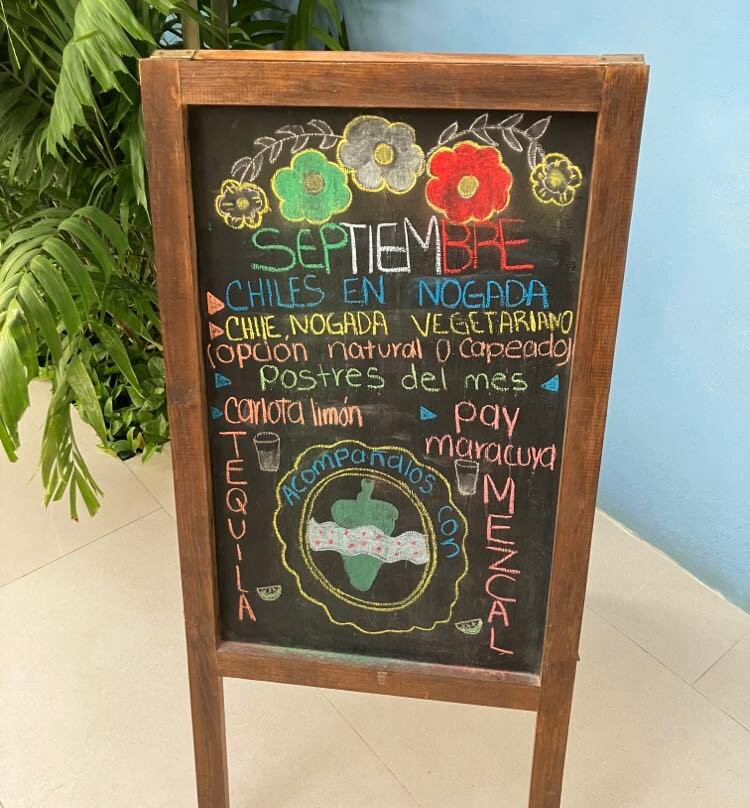 SEPTIEMBRE
CHILES EN NOGADA
CHILE NOGADA VEGETARIANO
(opción natural o capeado)
Postres del mes
carlota limón
pay
maracuya
TEQUILA
Acompañalos con
MEZCAL